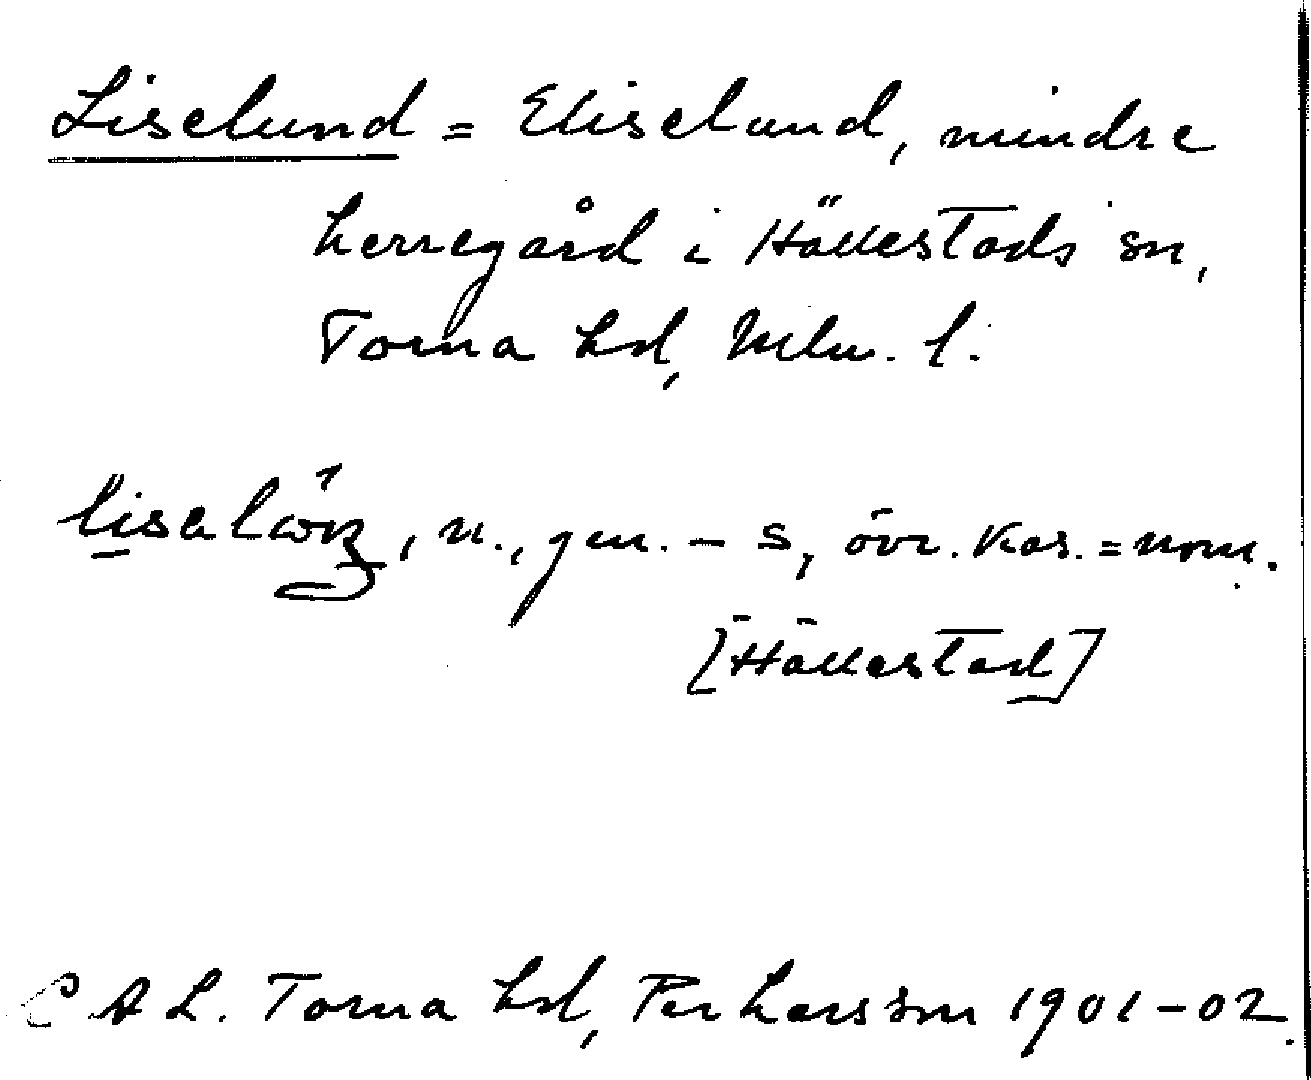 Liselund = Eliselund, mindre
herregård i Hällestads sn,
Torna hd, Mlm. l.
n., gen. – s, övr. kas. = nom.
[Hällestad]
A L. Torna hd, Per Larsson 1901–02.